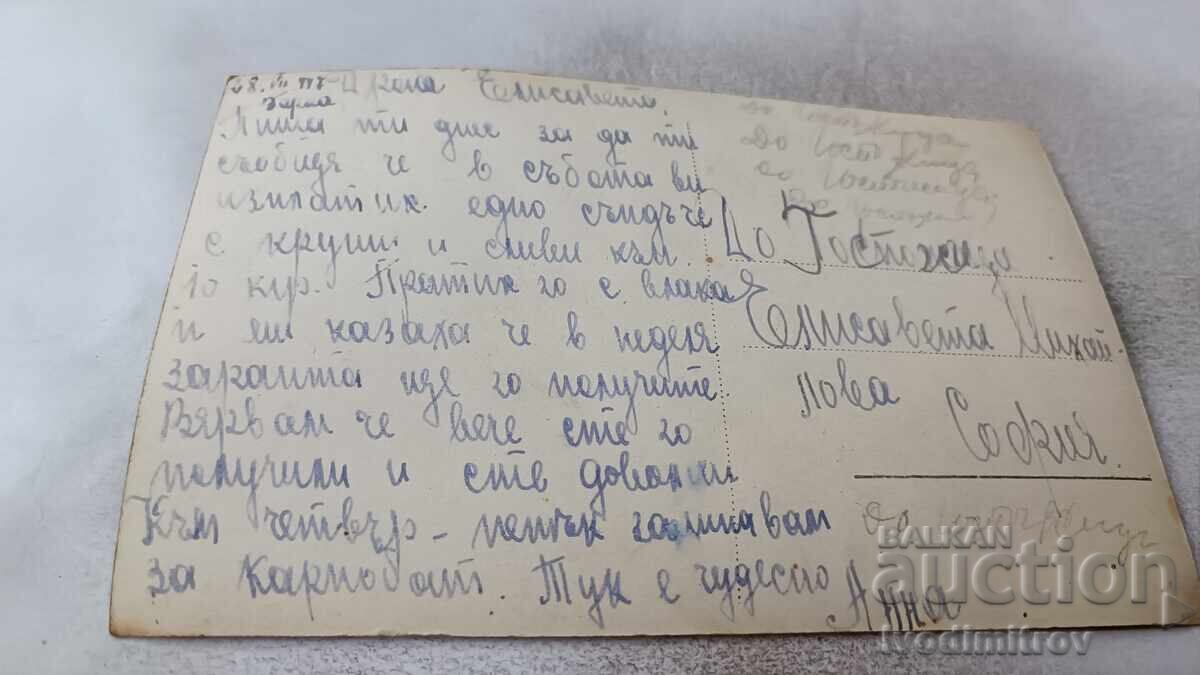 Елисавета
Пиша ти две за да ти
съобщя че в събота ви
изпратих едно сандъче
с круши и сливи към
10 кгр. Пратих го с влака
и ми казаха че в неделя
заранта ще го получите
Вярвам че вече сте го
получили и сте доволни
Към четвър-петък заминавам
за Карнобат. Тук е чудесно
Анна
До Госпожица
До Госпожица
Елисавета Михай-
лова
София
BALKAN
auction
ivodimitrov